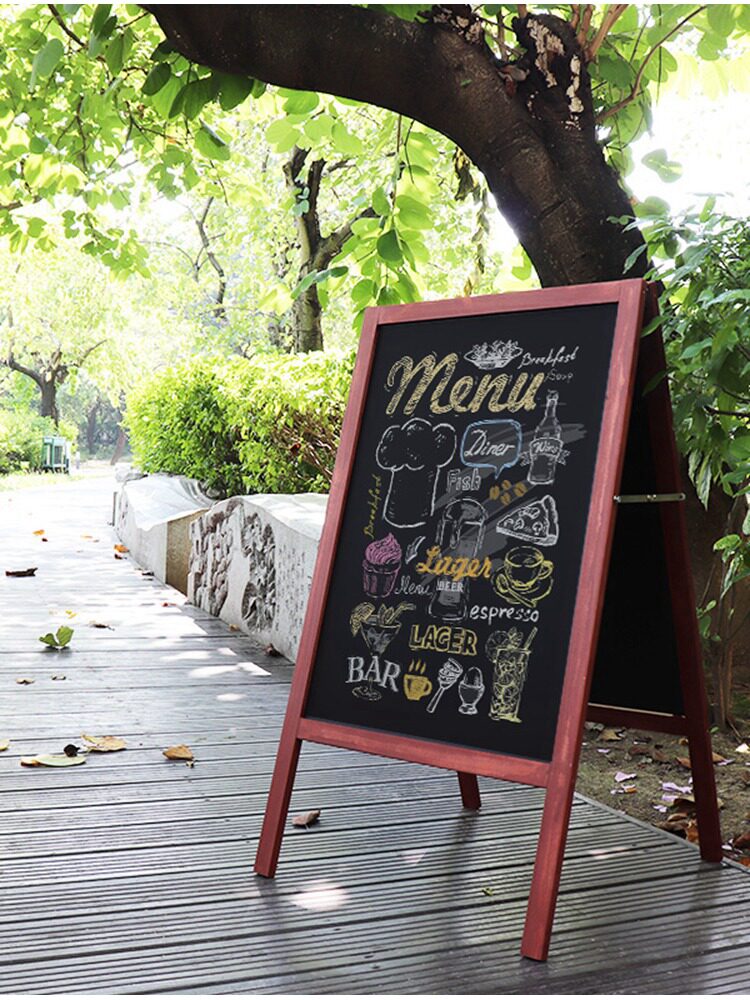 Breakfast
Menu
Soup
Diner
Wine
Fish
Breakfast
Lager
Menu
BEER
espresso
LAGER
BAR